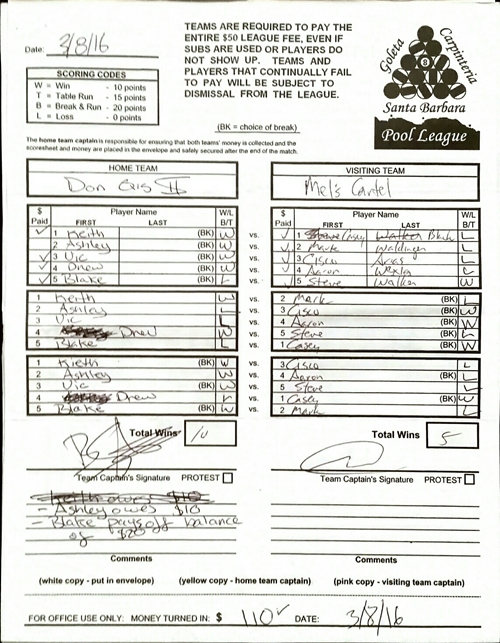 Date: 3/8/16
TEAMS ARE REQUIRED TO PAY THE
ENTIRE $50 LEAGUE FEE, EVEN IF
SUBS ARE USED OR PLAYERS DO
NOT SHOW UP. TEAMS AND
PLAYERS THAT CONTINUALLY FAIL
TO PAY WILL BE SUBJECT TO
DISMISSAL FROM THE LEAGUE.
Goleta Carpinteria
8
Santa Barbara
Pool League
SCORING CODES
W = Win - 10 points
T = Table Run - 15 points
B = Break & Run - 20 points
L = Loss - 0 points
(BK = choice of break)
The home team captain is responsible for ensuring that both teams' money is collected and the
scoresheet and money are placed in the envelope and safely secured after the end of the match.
HOME TEAM VISITING TEAM
Don Mel's Cartel
$ Paid Player Name FIRST LAST W/L B/T $ Paid Player Name FIRST LAST W/L B/T
✓ 1 Keith (BK) W vs. ✓ 1 Casey Black L
2 Ashley (BK) W vs. ✓ 2 Mark Waldinger L
✓ 3 Vic (BK) W vs. ✓ 3 Cisco Arias L
✓ 4 Drew (BK) W vs. ✓ 4 Aaron Wexler L
✓ 5 Blake (BK) L vs. ✓ 5 Steve Walken W
1 Keith W vs. 2 Mark (BK) L
2 Ashley L vs. 3 Cisco (BK) W
3 Vic L vs. 4 Aaron (BK) W
4 Drew W vs. 5 Steve (BK) L
5 Blake L vs. 1 Casey (BK) W
1 Kieth (BK) W vs. 3 Cisco L
2 Ashley (BK) W vs. 4 Aaron (BK) L
3 Vic W vs. 5 Steve L
4 Drew L vs. 1 Casey (BK) W
5 Blake (BK) W vs. 2 Mark L
Total Wins 10 Total Wins 5
Team Captain's Signature PROTEST Team Captain's Signature PROTEST
Keith owes $10
- Ashley owes $10
- Blake pays off balance
of $20
Comments Comments
(white copy - put in envelope) (yellow copy - home team captain) (pink copy - visiting team captain)
FOR OFFICE USE ONLY: MONEY TURNED IN: $ 110 ✓ DATE: 3/8/16